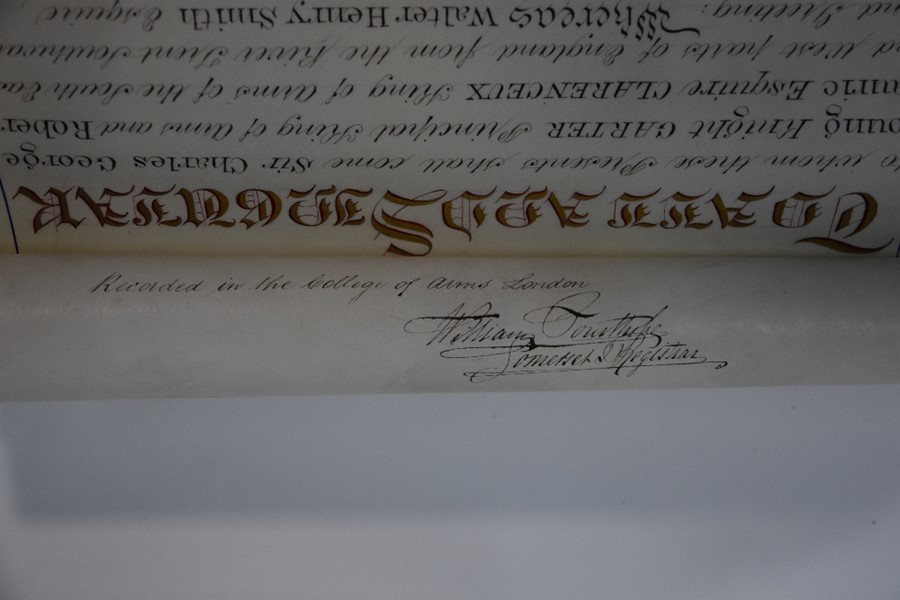 TO ALL AND SINGULAR
to whom these Presents shall come Sir Charles George
oung Knight GARTER Principal King of Arms and Rober
aurie Esquire CLARENCEUX King of Arms of the South Ea
nd West parts of England from the River Trent Southwa
nd Greeting: Whereas Walter Henry Smith Esquire
Recorded in the College of Arms London
William Courthope
Somerset & Registrar